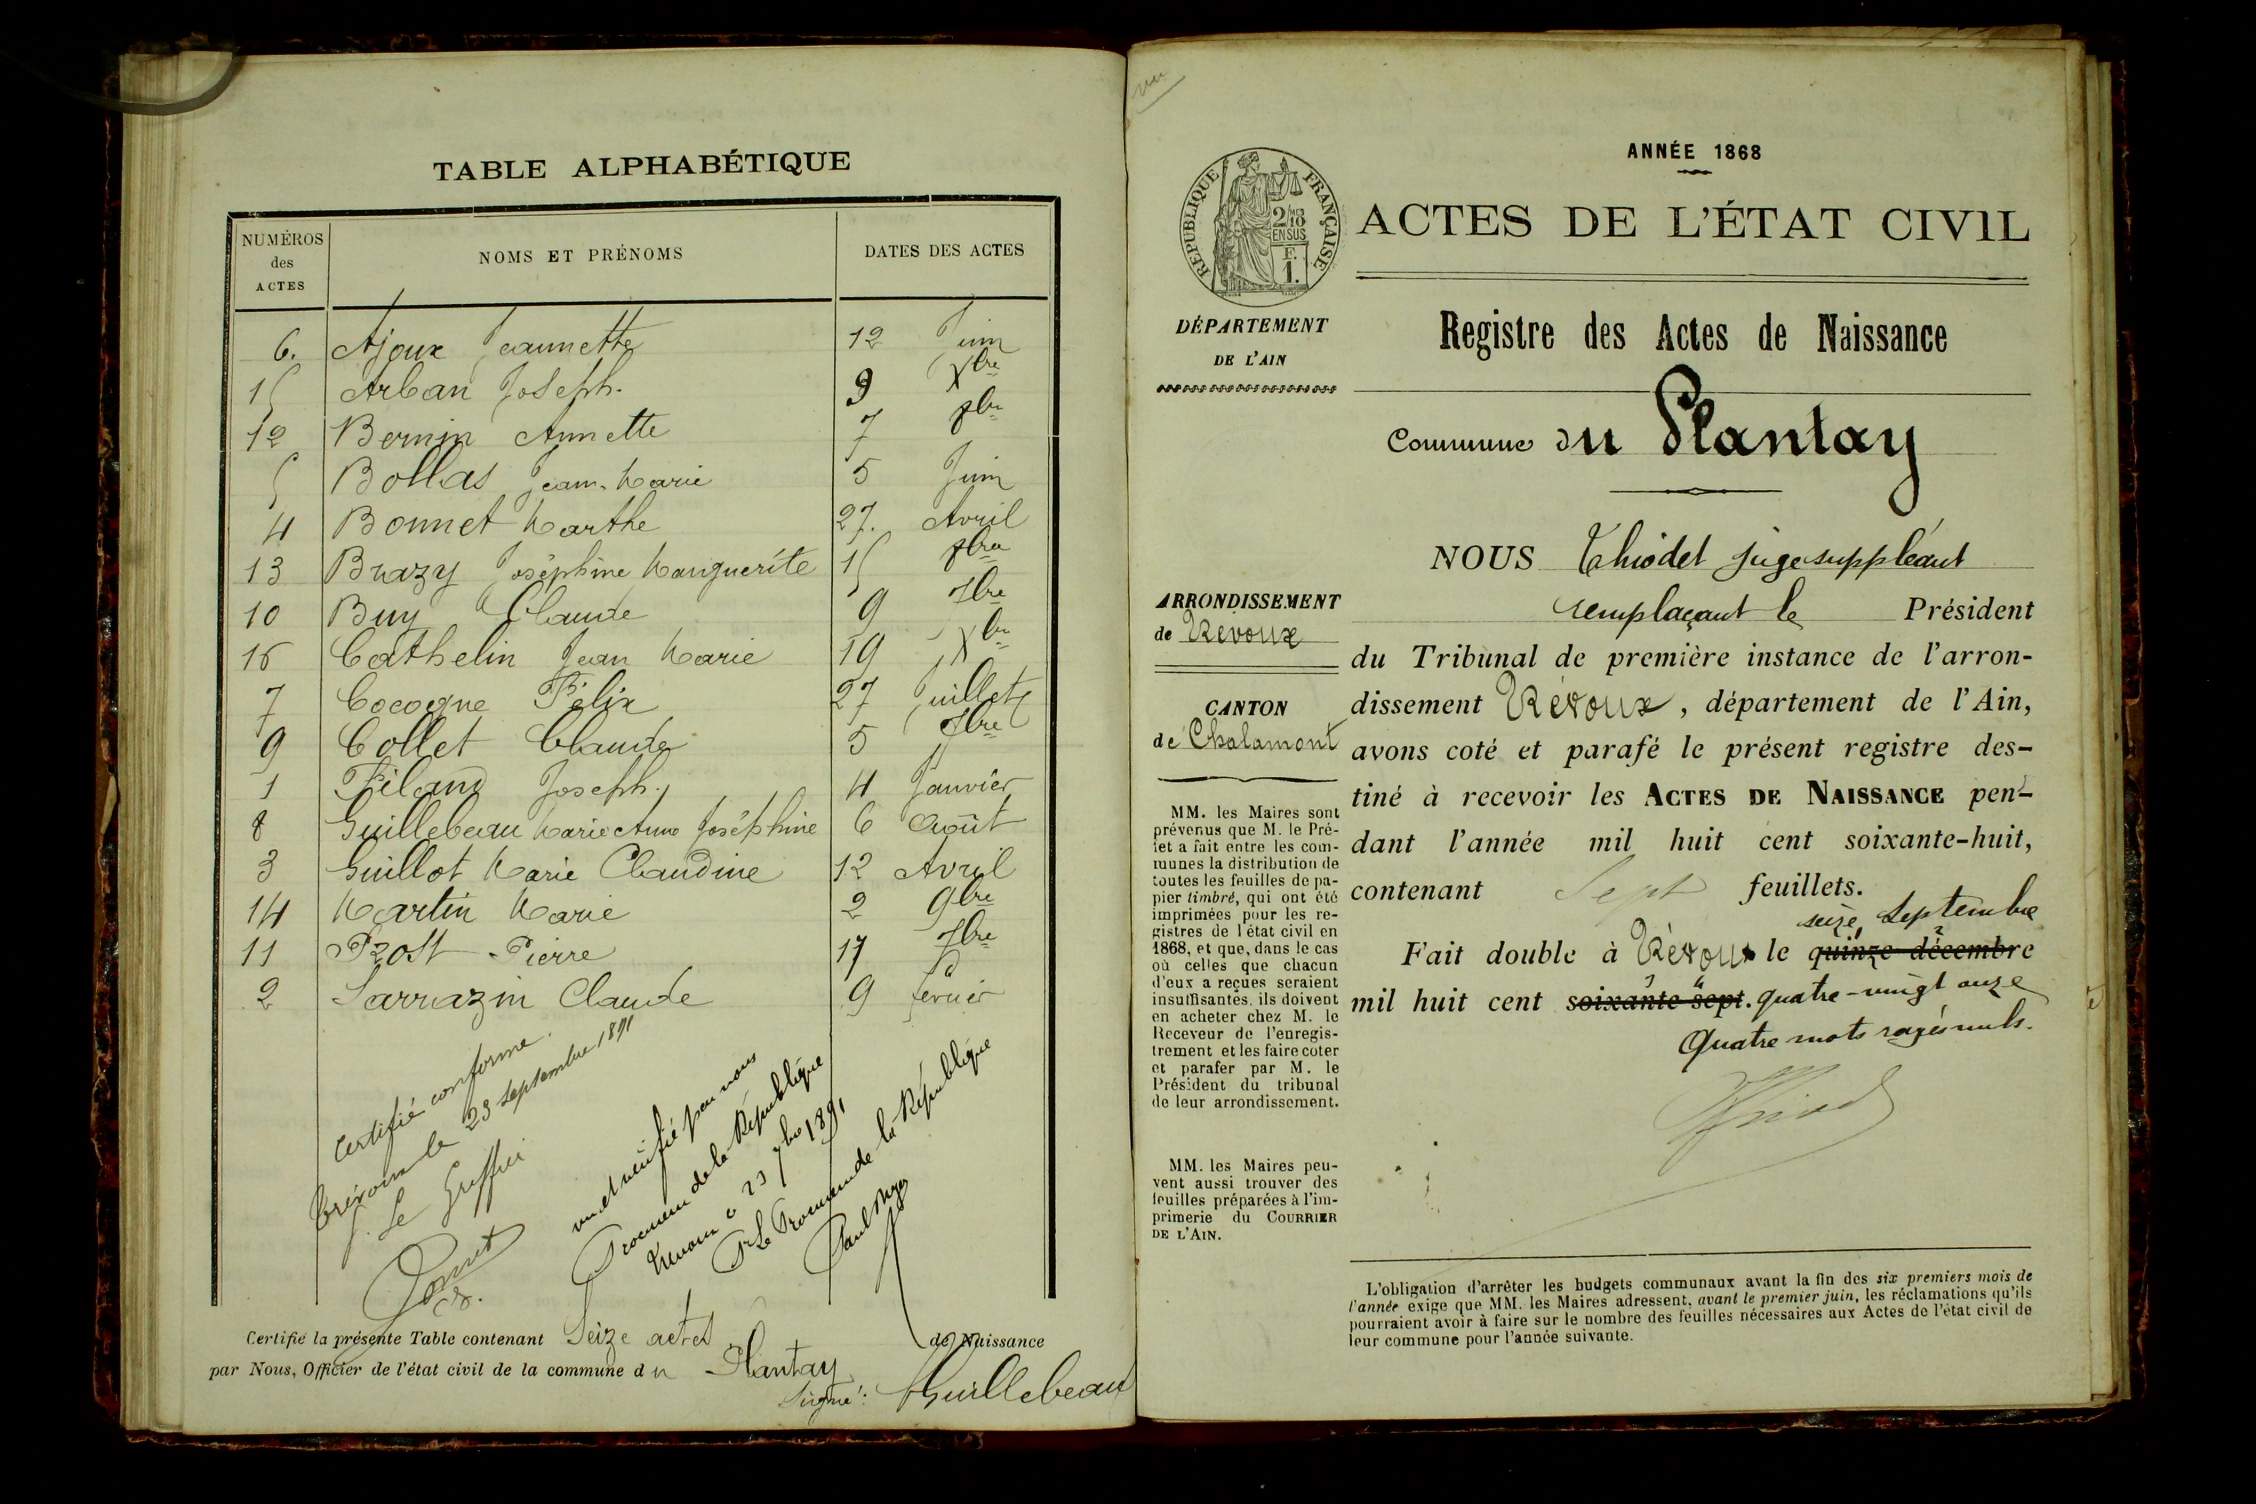 TABLE ALPHABÉTIQUE
NUMÉROS des ACTES
NOMS ET PRÉNOMS
DATES DES ACTES
6. Ajoux Jeannette 12 Juin
15 Arban Joseph. 9 Xbre
12 Bernin Annette 7 8bre
5 Bollas Jean-Marie 5 Juin
4 Bonnet Marthe 27. Avril
13 Brazy Joséphine Marguerite 15 8bre
10 Buy Claude 9 7bre
16 Cathelin Jean Marie 19 Xbre
7 Cocogne Félix 27 Juillet
9 Collet Claude 5 7bre
1 Filand Joseph. 4 Janvier
8 Guillebeau Marie Anne Joséphine 6 Août
3 Guillot Marie Claudine 12 Avril
14 Martin Marie 2 9bre
11 Prost Pierre 17 7bre
2 Sarrazin Claude 9 février
Certifié conforme.
Trévoux le 23 septembre 1891
Le Greffier
vu et vérifié par nous
Procureur de la République
Trévoux le 23 7bre 1891
Pr Le Procureur de la République
Certifié la présente Table contenant Seize actes de Naissance
par Nous, Officier de l'état civil de la commune du Plantay
Signé: Guillebeau
vu
RÉPUBLIQUE FRANÇAISE
2/10 EN SUS
F. 1.
DÉPARTEMENT
DE L'AIN
ARRONDISSEMENT
de Trévoux
CANTON
de Chalamont
MM. les Maires sont
prévenus que M. le Pré-
fet a fait entre les com-
munes la distribution de
toutes les feuilles de pa-
pier timbré, qui ont été
imprimées pour les re-
gistres de l'état civil en
1868, et que, dans le cas
où celles que chacun
d'eux a reçues seraient
insuffisantes, ils doivent
en acheter chez M. le
Receveur de l'enregis-
trement et les faire coter
et parafer par M. le
Président du tribunal
de leur arrondissement.
MM. les Maires peu-
vent aussi trouver des
feuilles préparées à l'im-
primerie du COURRIER
DE L'AIN.
ANNÉE 1868
ACTES DE L'ÉTAT CIVIL
Registre des Actes de Naissance
Commune du Plantay
NOUS Thiodet juge suppléant
remplaçant le Président
du Tribunal de première instance de l'arron-
dissement Trévoux, département de l'Ain,
avons coté et parafé le présent registre des-
tiné à recevoir les ACTES DE NAISSANCE pen-
dant l'année mil huit cent soixante-huit,
contenant Sept feuillets.
seize septembre
Fait double à Trévoux le quinze décembre
mil huit cent soixante-sept. quatre-vingt onze
Quatre mots rayés nuls.
L'obligation d'arrêter les budgets communaux avant la fin des six premiers mois de
l'année exige que MM. les Maires adressent, avant le premier juin, les réclamations qu'ils
pourraient avoir à faire sur le nombre des feuilles nécessaires aux Actes de l'état civil de
leur commune pour l'année suivante.